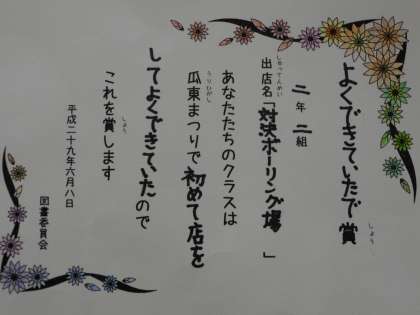 よくできていたで賞
二年二組
出店名「対決ボーリング場」
あなたたちのクラスは
瓜東まつりで初めて店を
してよくできていたので
これを賞します
平成二十九年六月八日
図書委員会